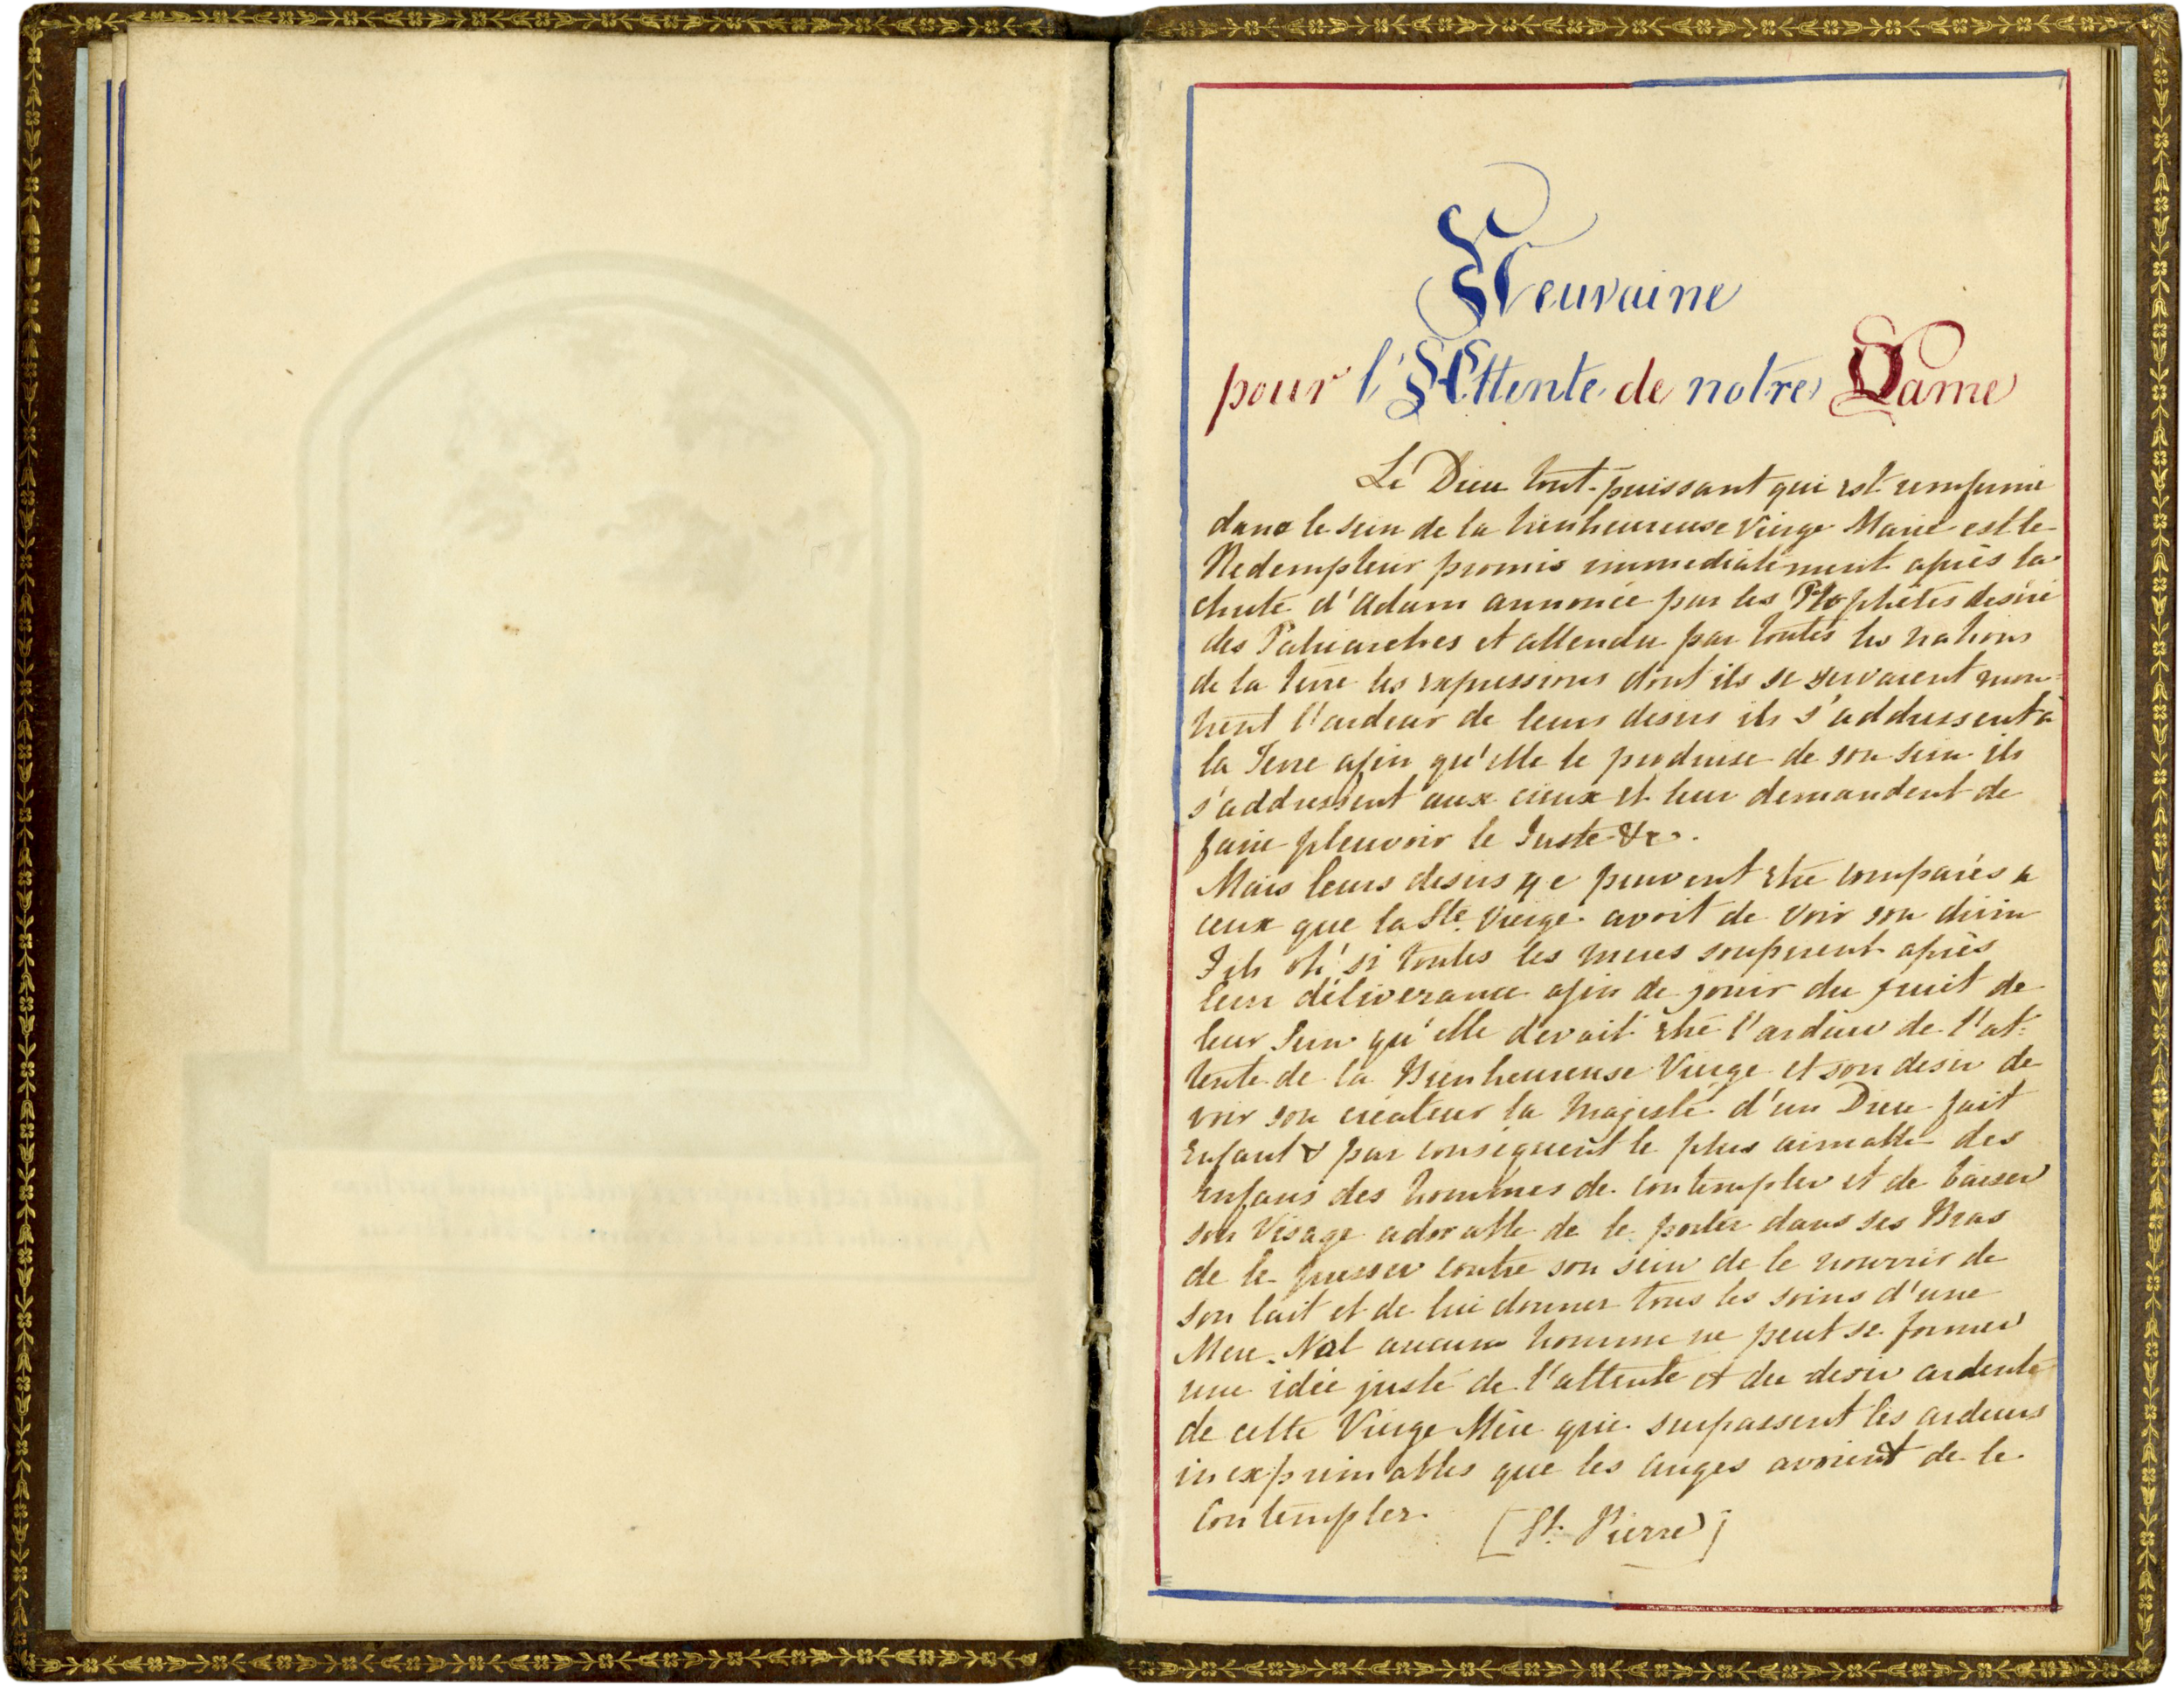 Neuvaine
pour l'Attente de notre Dame
Le Dieu tout-puissant qui est renfermé
dans le sein de la bienheureuse Vierge Marie est le
Redempteur promis immediatement après la
chute d'Adam annoncé par les Prophètes desiré
des Patriarches et attendu par toutes les nations
de la terre les expressions dont ils se servaient mon-
trent l'ardeur de leurs desirs ils s'addressent à
la Terre afin qu'elle le produise de son sein ils
s'addressent aux cieux et leur demandent de
faire pleuvoir le Juste &c.
Mais leurs desirs ne peuvent etre comparés a
ceux que la Ste. Vierge avoit de voir son divin
Fils oh! si toutes les meres soupirent après
leur déliverance afin de jouir du fruit de
leur Sein qu'elle devait etre l'ardeur de l'at-
tente de la Bienheureuse Vierge et son desir de
voir son créateur la Majesté d'un Dieu fait
Enfant & par conséquent le plus aimable des
enfans des hommes de contempler et de baiser
son Visage adorable de le porter dans ses Bras
de le presser contre son sein de le nourrir de
son lait et de lui donner tous les soins d'une
Mere. Nul aucun homme ne peut se former
une idée juste de l'attente et du desir ardente
de cette Vierge Mère qui surpassent les ardeurs
inexprimables que les anges avoient de le
Contempler. [St. Pierre]